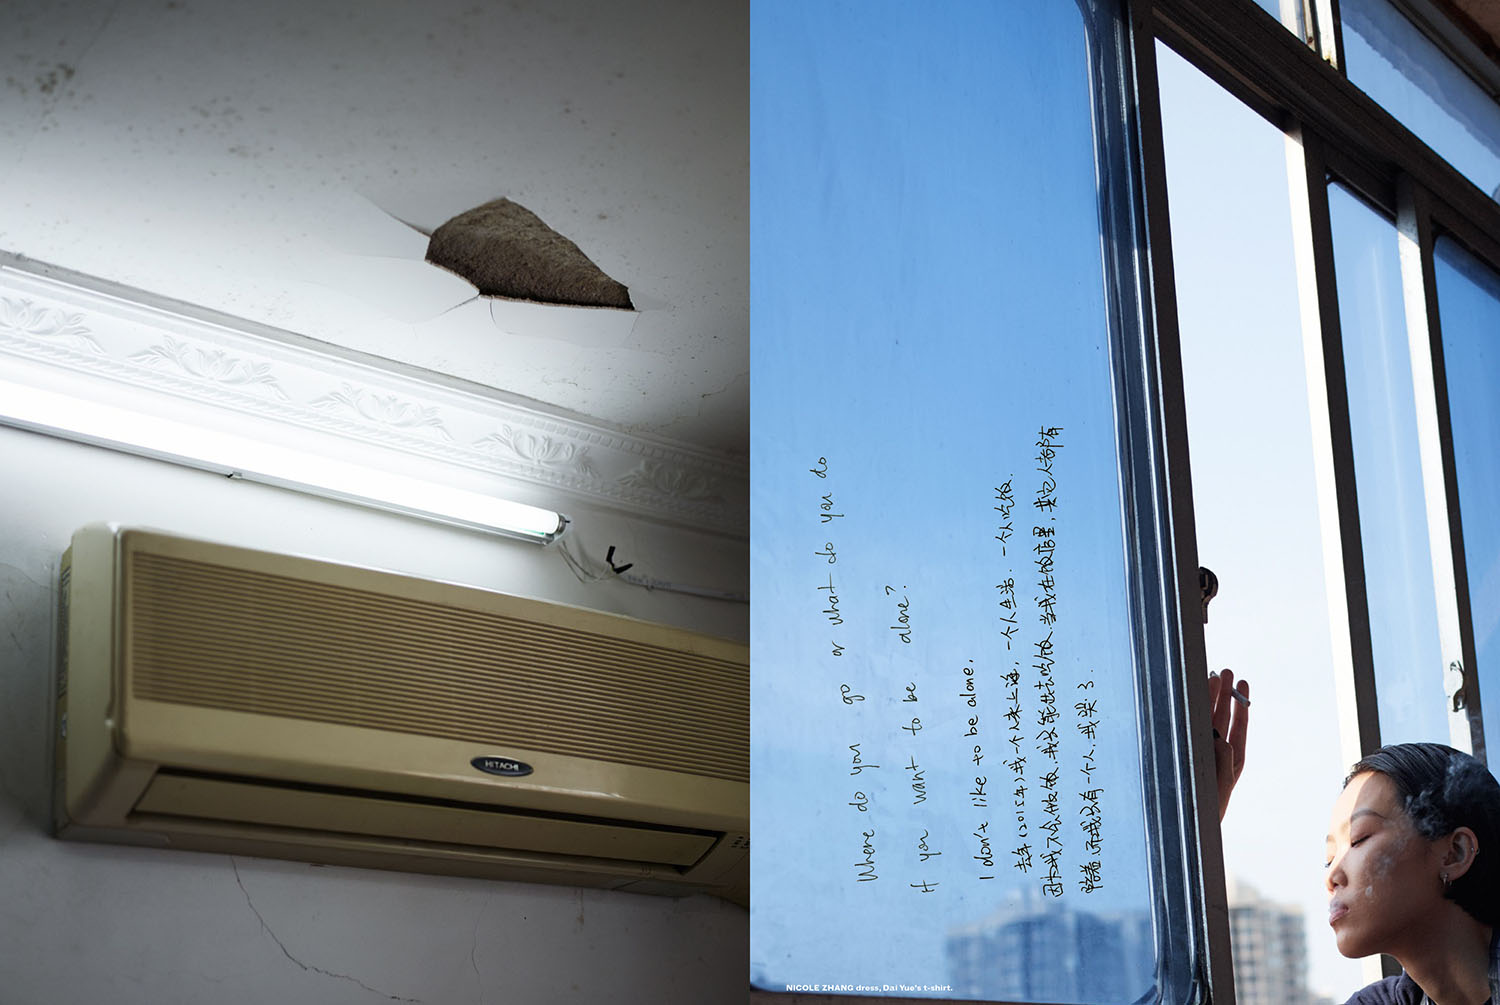 HITACHI
Where do you go or what do you do
If you want to be alone?
I don't like to be alone.
去年(2015年)我一个人来上海，一个人生活.一个人吃饭.
因为我不会做饭，我只能出去吃饭.当我在饭店里，其它人都有
而我只有一个人，我哭了.
NICOLE ZHANG dress, Dai Yue's t-shirt.